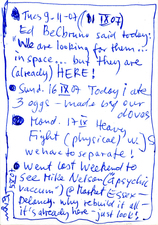 Tues 9-11-07 (11 IX 07)
Ed BelBruno said today:
"We are looking for them...
in space... but they are
(already) HERE!
Sund. 16 IX 07 Today I ate
3 eggs - made by our
doves
Mond. 17 IX Heavy
Fight (physical) w. S
we have to separate!
Went last weekend to
see Mike Nelson (a psychic
vacuum) @ Market Essex
Delancey. Why rebuild it all -
it's already here - just look!